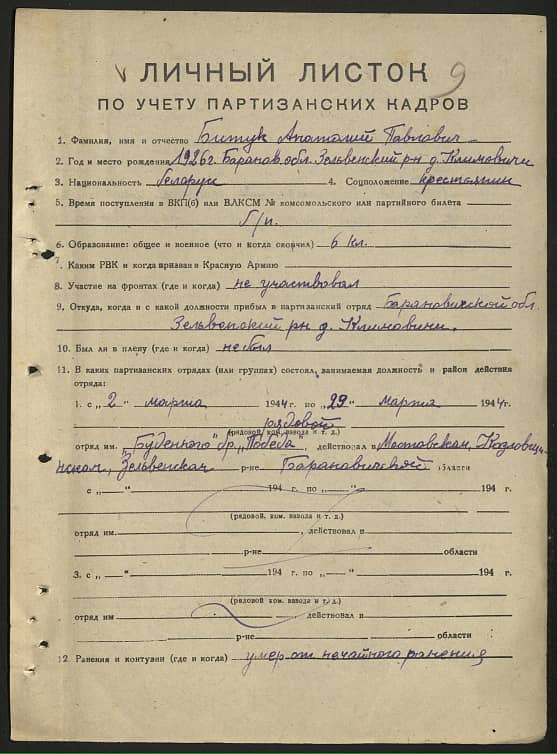 ЛИЧНЫЙ ЛИСТОК 9
ПО УЧЕТУ ПАРТИЗАНСКИХ КАДРОВ
1. Фамилия, имя и отчество Битук Анатолий Павлович
2. Год и место рождения 1926г. Баранов. обл. Зельвенский рн д. Климовичи
3. Национальность беларус 4. Соцположение крестьянин
5. Время поступления в ВКП(б) или ВЛКСМ № комсомольского или партийного билета
б/п.
6. Образование: общее и военное (что и когда окончил) 6 кл.
7. Каким РВК и когда призван в Красную Армию
8. Участие на фронтах (где и когда) не участвовал
9. Откуда, когда и с какой должности прибыл в партизанский отряд Барановичской обл.
Зельвенский рн д. Климовичи.
10. Был ли в плену (где и когда) не был
11. В каких партизанских отрядах (или группах) состоял, занимаемая должность и район действия
отряда:
1. с „2" марта 1944 г. по „29" марта 1944 г.
рядовой
(рядовой, ком. взвода и т. д.)
отряд им. „Буденного" бр. „Победа", действовал в Мостовская, Козловщи-
нская, Зельвенская р-не Барановичской области
с „ — " 194 г. по „ — " 194 г.
(рядовой, ком. взвода и т. д.)
отряд им. , действовал в
р-не области
3. с „ — " 194 г. по „ — " 194 г.
(рядовой, ком. взвода и т. д.)
отряд им действовал в
р-не области
12. Ранения и контузии (где и когда) умер от нечайного ранения